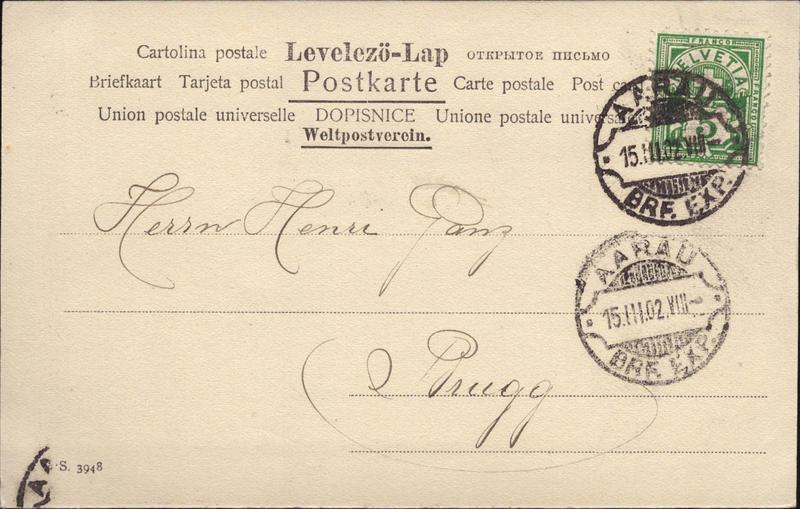 Cartolina postale Levelező-Lap ОТКРЫТОЕ ПИСЬМО
Briefkaart Tarjeta postal Postkarte Carte postale Post
Union postale universelle DOPISNICE Unione postale
Weltpostverein.
FRANCO
HELVETIA
AARAU
15.III.02.VIII-
BRF. EXP.
Herrn Henri Ganz
AARAU
15.III.02.VIII-
BRF. EXP.
Brugg
S. 3948